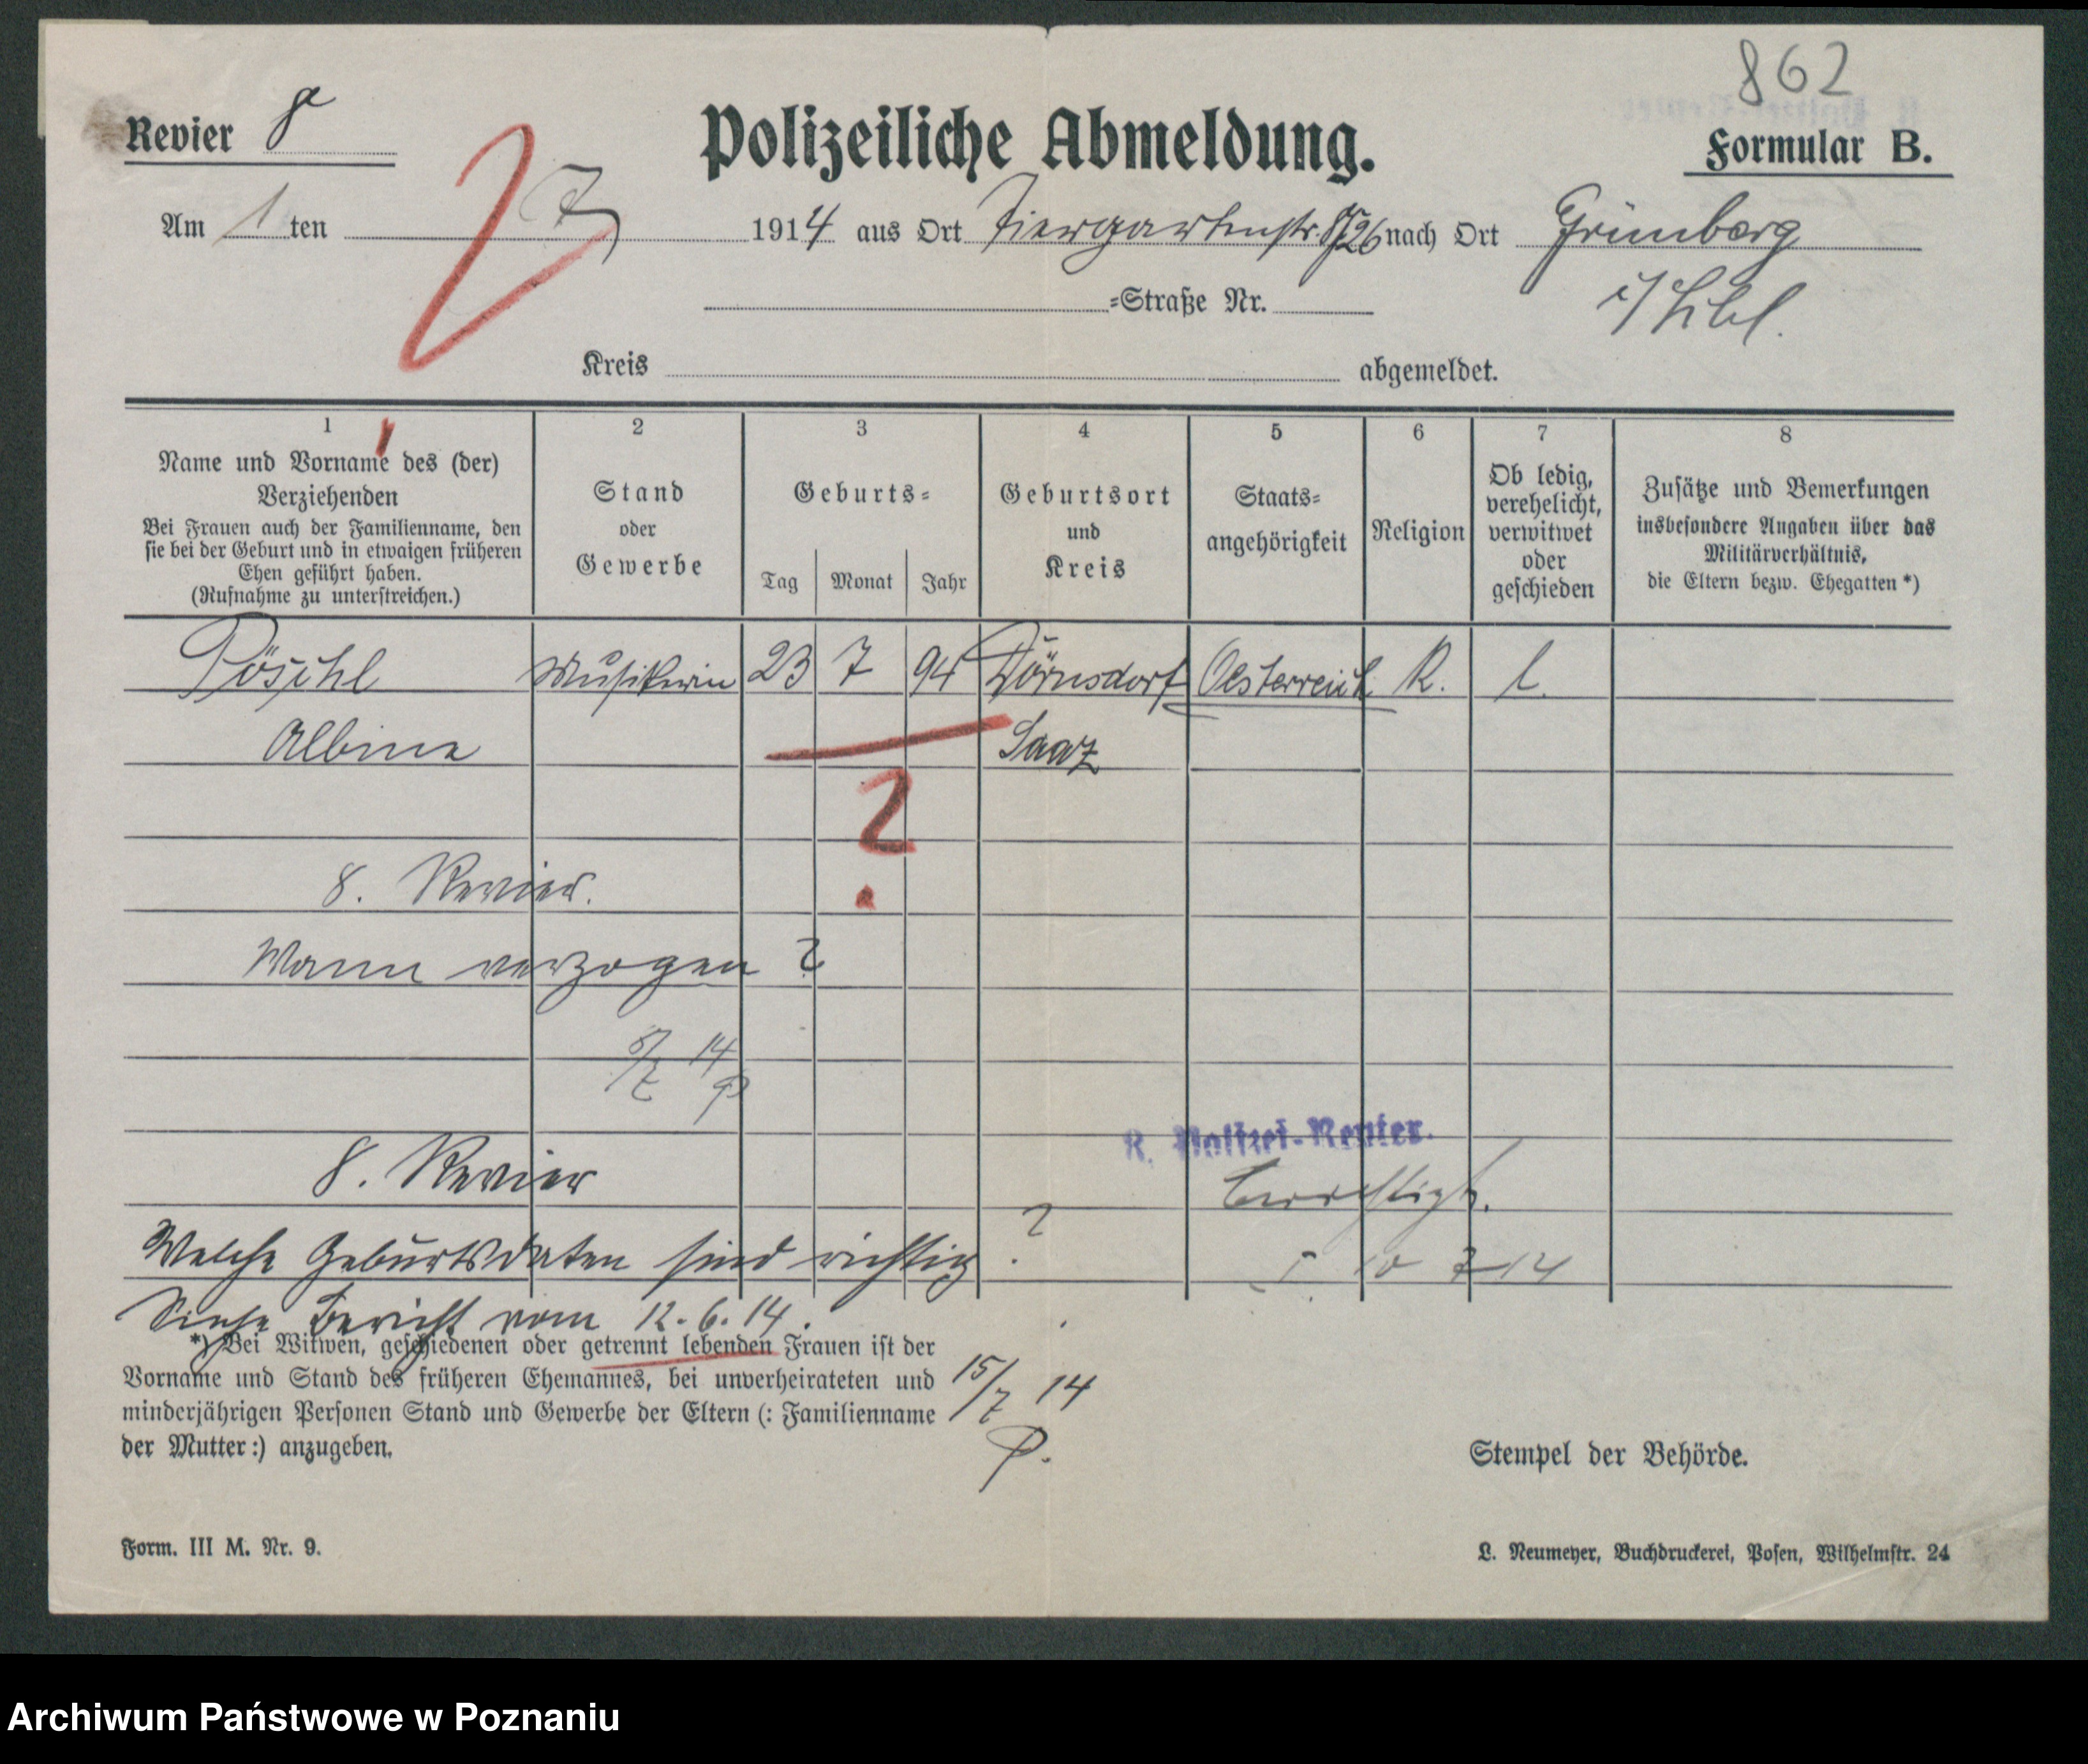 862
Revier 8
Polizeiliche Abmeldung.
Formular B.
Am 1 ten 7 1914 aus Ort Tiergartenstr. nach Ort Grünberg
=Straße Nr. i/Schl.
Kreis abgemeldet.
1 2 3 4 5 6 7 8
Name und Vorname des (der)
Verziehenden
Bei Frauen auch der Familienname, den
sie bei der Geburt und in etwaigen früheren
Ehen geführt haben.
(Rufnahme zu unterstreichen.)
Stand
oder
Gewerbe
Geburts=
Tag Monat Jahr
Geburtsort
und
Kreis
Staats=
angehörigkeit
Religion
Ob ledig,
verehelicht,
verwitwet
oder
geschieden
Zusätze und Bemerkungen
insbesondere Angaben über das
Militärverhältnis,
die Eltern bezw. Ehegatten *)
Pöschl Musikerin 23 7 94 Dörnsdorf Oesterreich R. l.
Albina Saaz
?
8. Revier.
Wann verzogen ?
14
8. Revier
8. Polizei-Revier.
Berichtigt.
Welche Geburtsdaten sind richtig ?
10 7 14
Siehe Bericht vom 12.6.14.
*) Bei Witwen, geschiedenen oder getrennt lebenden Frauen ist der
Vorname und Stand des früheren Ehemannes, bei unverheirateten und
minderjährigen Personen Stand und Gewerbe der Eltern (: Familienname
der Mutter :) anzugeben.
15/7 14
P.
Stempel der Behörde.
Form. III M. Nr. 9.
L. Neumeyer, Buchdruckerei, Posen, Wilhelmstr. 24
Archiwum Państwowe w Poznaniu